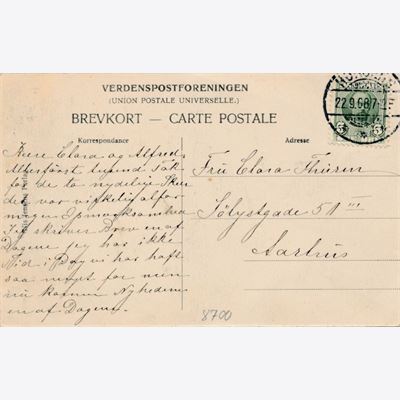 VERDENSPOSTFORENINGEN
(UNION POSTALE UNIVERSELLE.)
BREVKORT — CARTE POSTALE
Korrespondance
Adresse
22.9.08.7-
5 5
Kære Clara og Alfred
Allerførst tusend Tak
for de to nydelige
det var virkelig alfor
megen Opmærksomhed
Jeg skriver Brev en af
Dagene jeg har ikke
Tid i Dag vi har haft
saa meget
nu kommer Nyhederne
en af Dagene.
Fru Clara Thusen
Sølystgade 51
Aarhus
8700